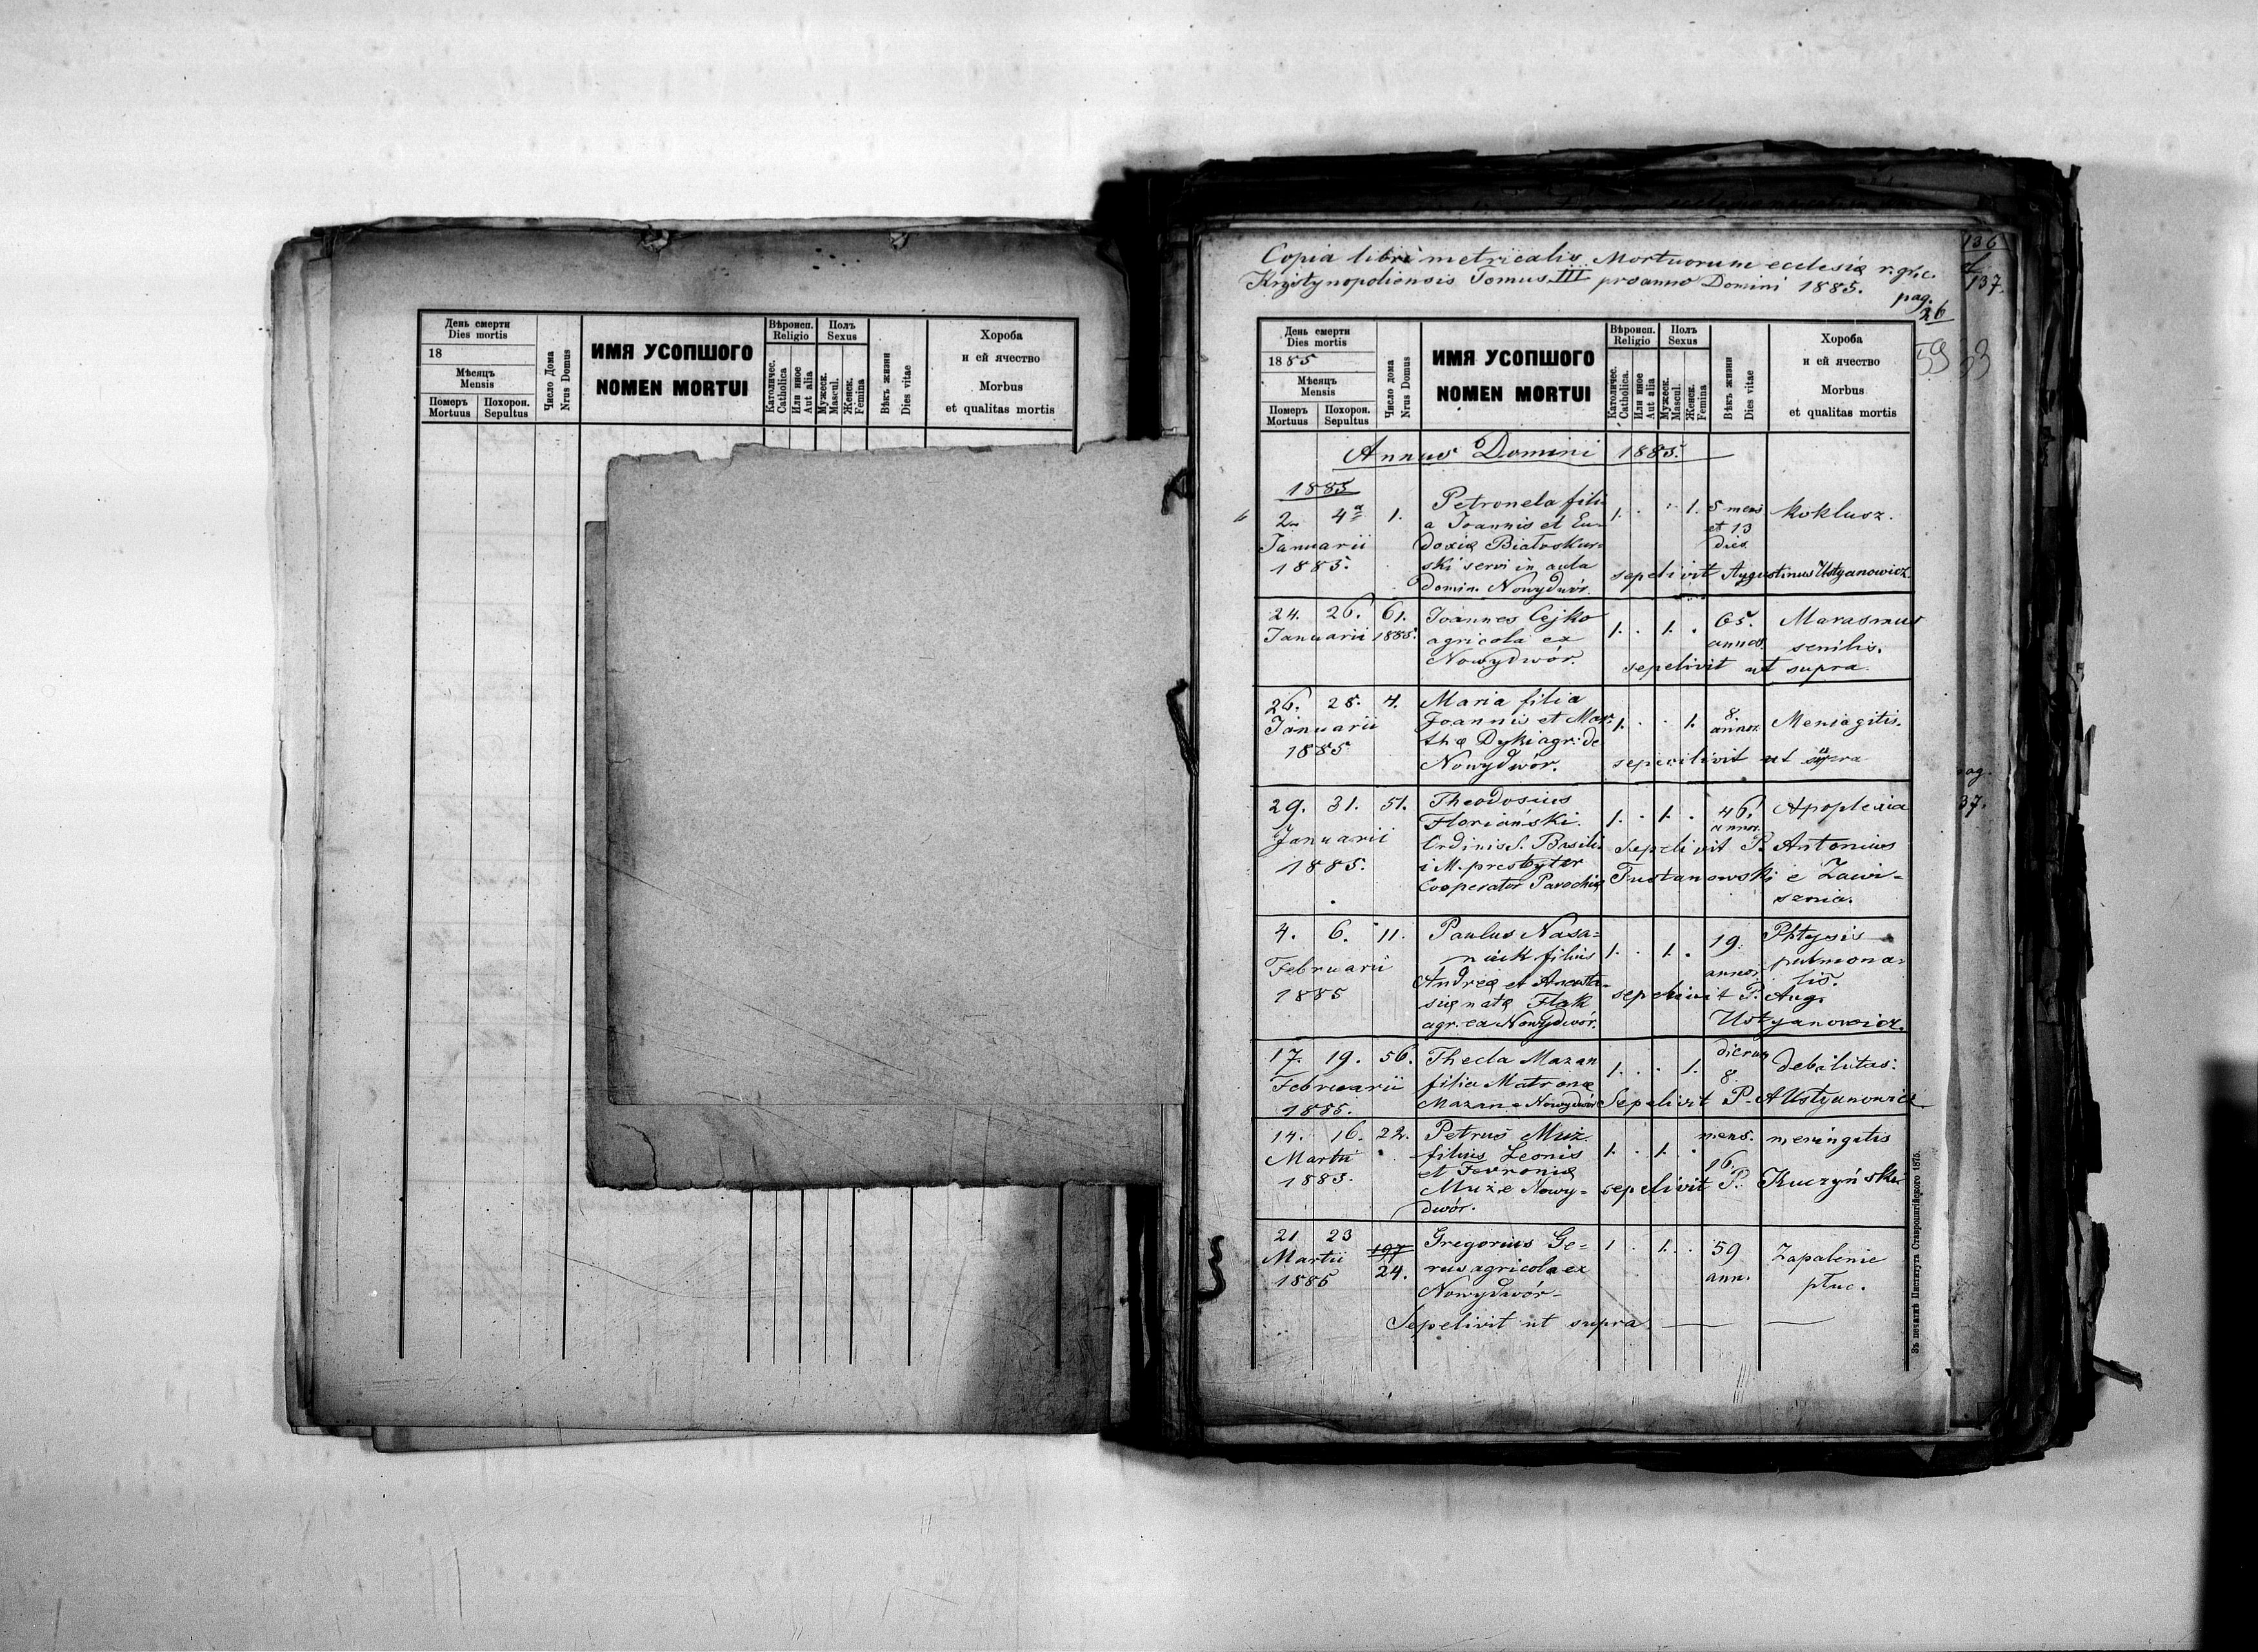 День смерти
Dies mortis
18
Мѣсяцъ
Mensis
Померъ
Mortuus
Похорон.
Sepultus
Число Дома
Nrus Domus
ИМЯ УСОПШОГО
NOMEN MORTUI
Вѣроисп.
Religio
Католичес.
Catholica
Или иное
Aut alia
Полъ
Sexus
Мужеск.
Mascul.
Женск.
Femina
Вѣкъ жизни
Dies vitae
Хороба
и ей ячество
Morbus
et qualitas mortis
Copia libri metricalis Mortuorum ecclesiæ r. gr. c.
Krystynopoliensis Tomus III pro anno Domini 1885.
pag.
26
136
137.
59 33
День смерти
Dies mortis
1885
Мѣсяцъ
Mensis
Померъ
Mortuus
Похорон.
Sepultus
Число дома
Nrus Domus
ИМЯ УСОПШОГО
NOMEN MORTUI
Вѣроисп.
Religio
Католичес.
Catholica.
Или иное
Aut alia
Полъ
Sexus
Мужеск.
Mascul.
Женск.
Femina
Вѣкъ жизни
Dies vitae
Хороба
и ей ячество
Morbus
et qualitas mortis
Annus Domini 1885.
1885
2 4 1. Petronela fili- 1. . . 1. 5 mens Koklusz.
a Joannis et Eu- et 13
Januarii doxiæ Białoskur- dies
1885. ski servi in aula sepelivit Augustinus Ustyanowicz
domin. Nowydwór.
24. 26. 61. Joannes Cejko 1. . 1. . 65. Marasmus
Januarii 1885. agricola ex annos senilis.
Nowydwór. sepelivit ut supra.
26. 28. 4. Maria filia 8.
Januarii Joannis et Mar- 1. . . 1. annor. Meniagitis.
1885 thæ Dyki agr. de
Nowydwór. sepecilivit ut supra
29. 31. 51. Theodosius 1. . 1. . 46. Apoplexia
Floriański. annor.
Januarii Ordinis S. Basili- Sepelivit P. Antonius
1885. i M. presbyter Tustanowski e Zawi-
Cooperator Parochiæ sznia.
ag.
37.
4. 6. 11. Paulus Nasa- 1. . 1. . 19. Phtysis
niuk filius annor. pulmona-
Februarii Andreæ et Anasta- lis.
1885 siæ natæ Flak sepelivit P. Aug.
agr. ex Nowydwór. Ustyanowicz.
17. 19. 56. Thecla Mazan 1. . . 1. dierum debilitas.
Februarii filia Matronæ 8.
1885. Mazan e Nowydwór Sepelivit P. A Ustyanowicz
14. 16. 22. Petrus Muż 1. . 1. . mens. meningitis
Martii filius Leonis 16.
1885. et Fevroniæ
Muż e Nowy- sepelivit P. Kuczyński
dwór.
21 23 197 Gregorius Ge- 1 . 1. . 59 Zapalenie
Martii 24. rus agricola ex ann. płuc.
1885 Nowydwór
Sepelivit ut supra.
Зъ печатнѣ Института Ставропигійского 1875.